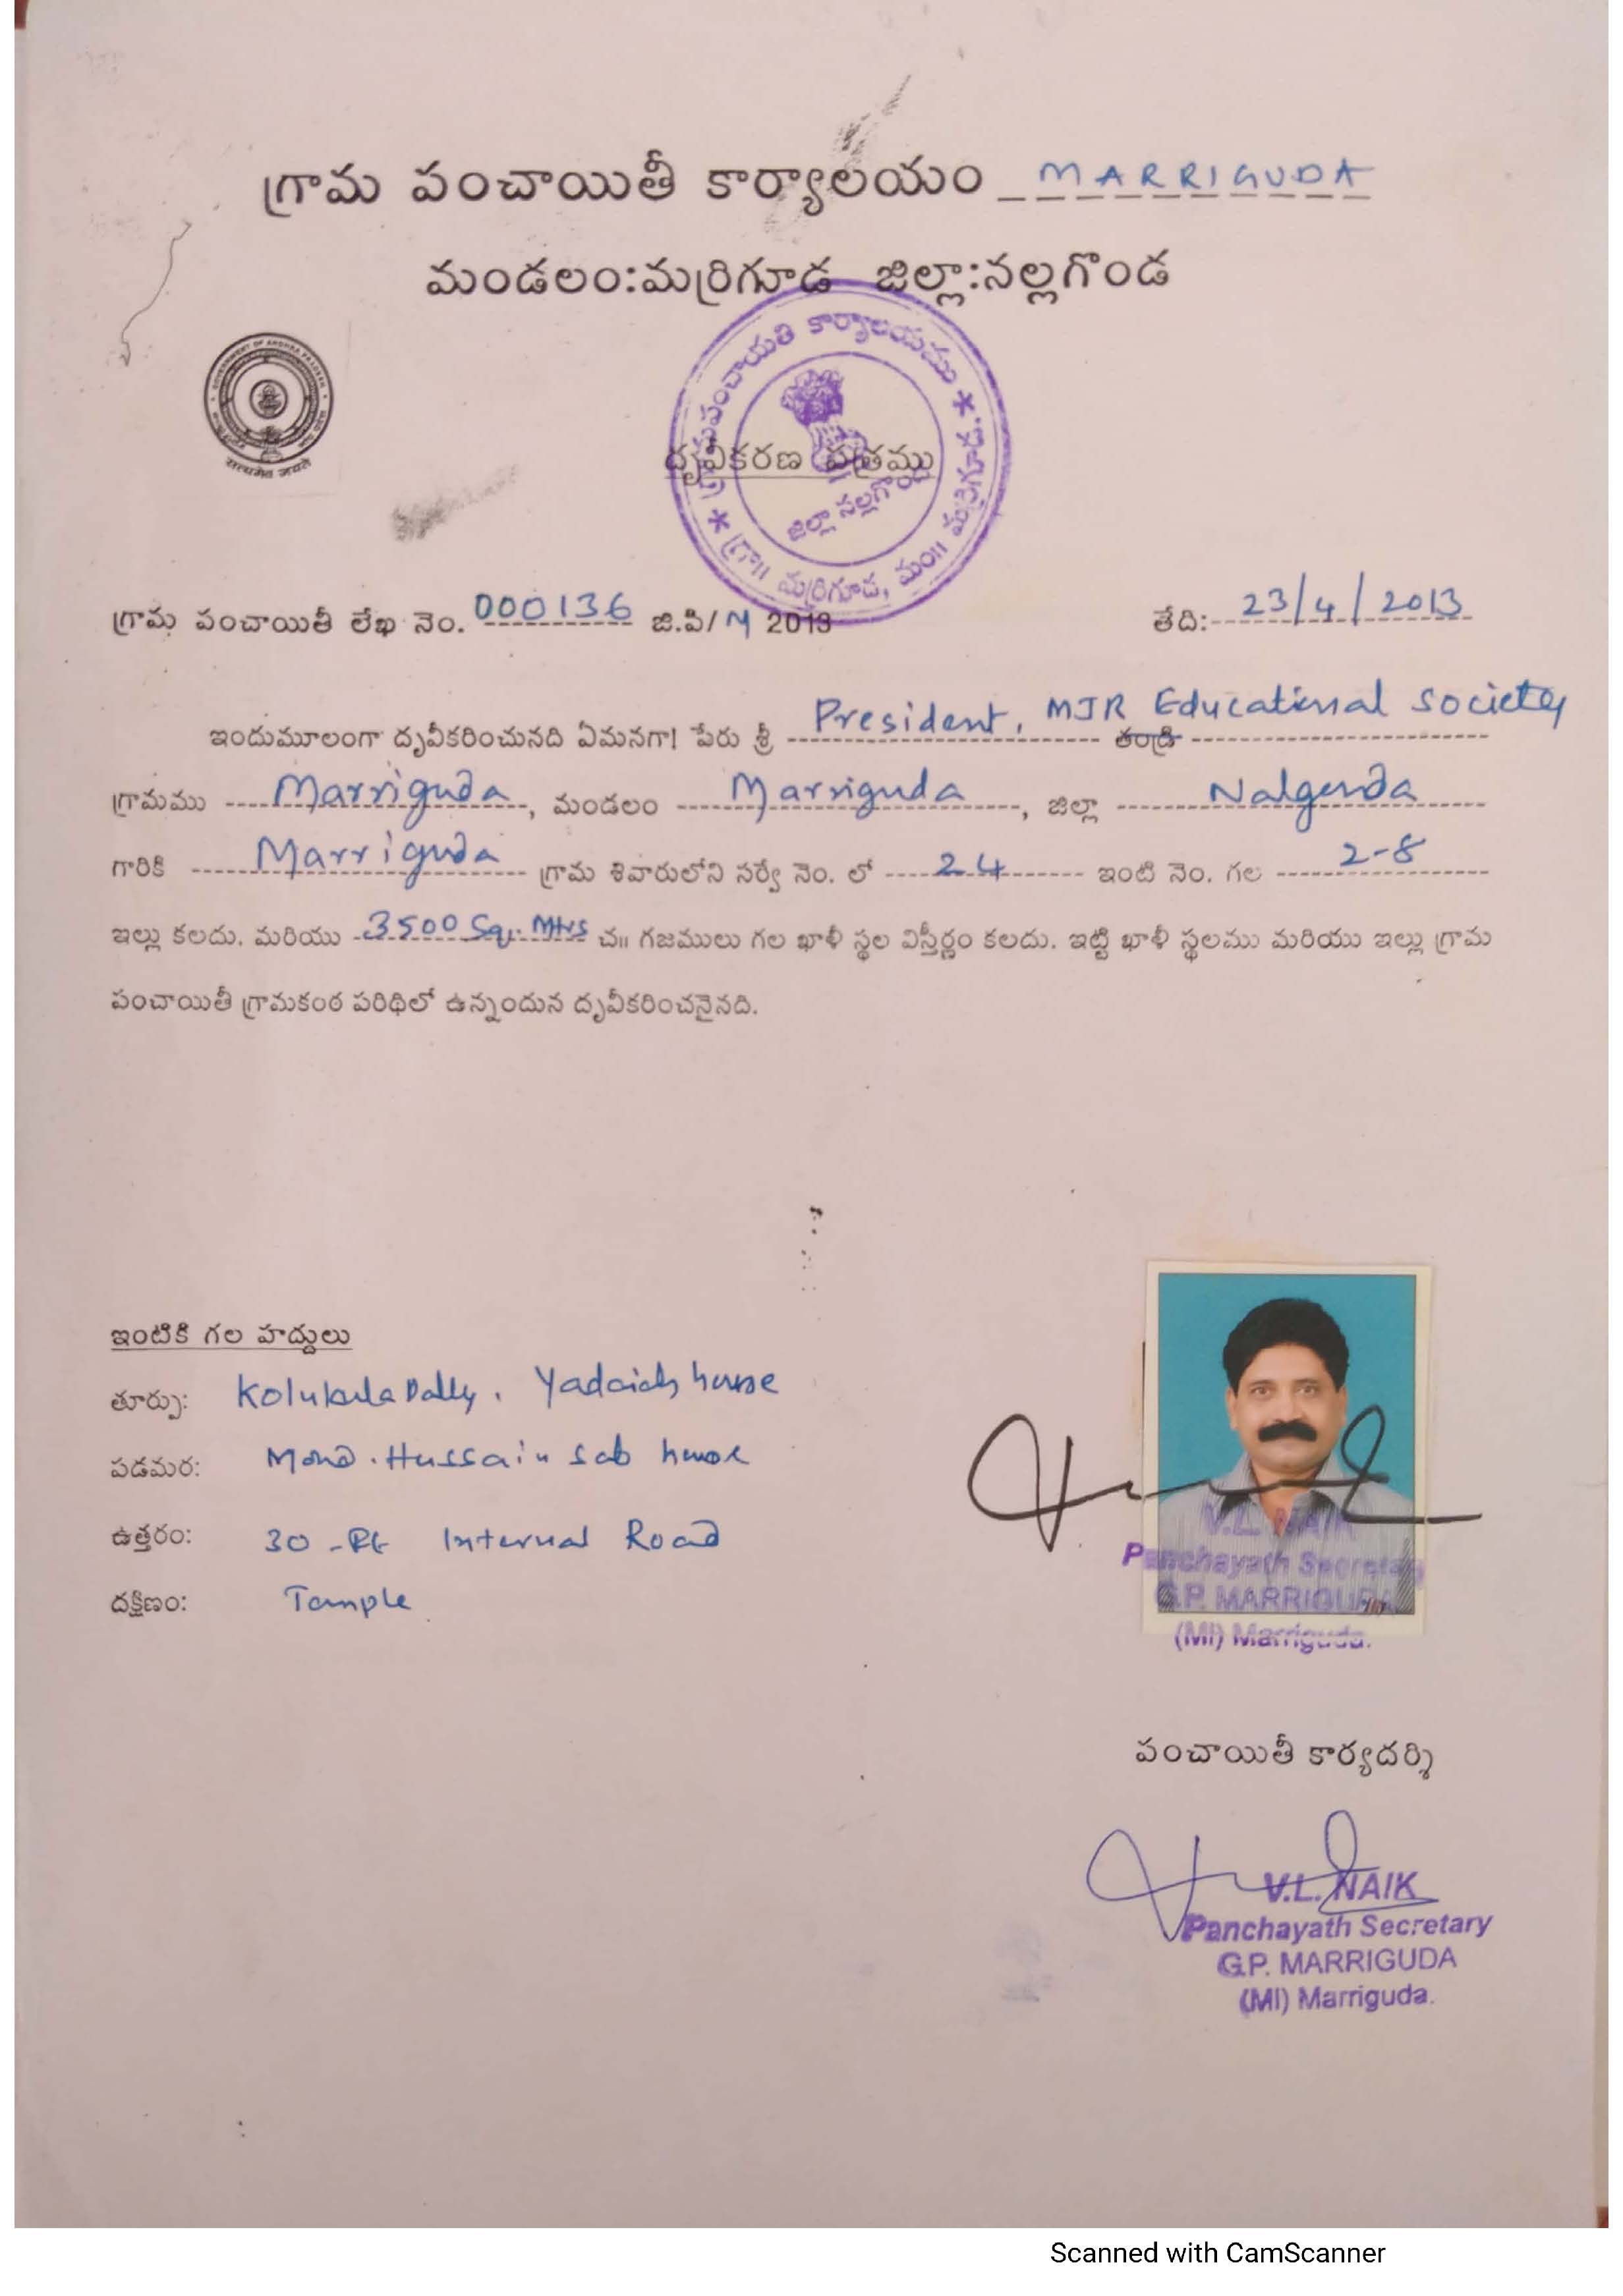 గ్రామ పంచాయితీ కార్యాలయం MARRIGUDA
మండలం:మర్రిగూడ జిల్లా:నల్లగొండ
GOVERNMENT OF ANDHRA PRADESH
सत्यमेव जयते
గ్రామపంచాయతి కార్యాలయము * గ్రా॥ మర్రిగూడ, మం॥ మర్రిగూడ. *
జిల్లా నల్లగొండ
దృవీకరణ పత్రము
గ్రామ పంచాయితీ లేఖ నెం. 000136 జి.పి/M 2013 తేది: 23/4/2013
ఇందుమూలంగా దృవీకరించునది ఏమనగా! పేరు శ్రీ President, MJR Educational Society తండ్రి
గ్రామము Marriguda, మండలం Marriguda, జిల్లా Nalgonda
గారికి Marriguda గ్రామ శివారులోని సర్వే నెం. లో 24 ఇంటి నెం. గల 2-8
ఇల్లు కలదు. మరియు 3500 Sq. Mtrs చ॥ గజములు గల ఖాళీ స్థల విస్తీర్ణం కలదు. ఇట్టి ఖాళీ స్థలము మరియు ఇల్లు గ్రామ
పంచాయితీ గ్రామకంఠ పరిధిలో ఉన్నందున దృవీకరించనైనది.
ఇంటికి గల హద్దులు
తూర్పు: Yadaiah house
పడమర: Mohd. Hussain Sab house
ఉత్తరం: 30 -Ft Internal Road
దక్షిణం: Temple
V.L. NAIK
Panchayath Secretary
G.P. MARRIGUDA
(Ml) Marriguda.
పంచాయితీ కార్యదర్శి
V.L. NAIK
Panchayath Secretary
G.P. MARRIGUDA
(Ml) Marriguda.
Scanned with CamScanner